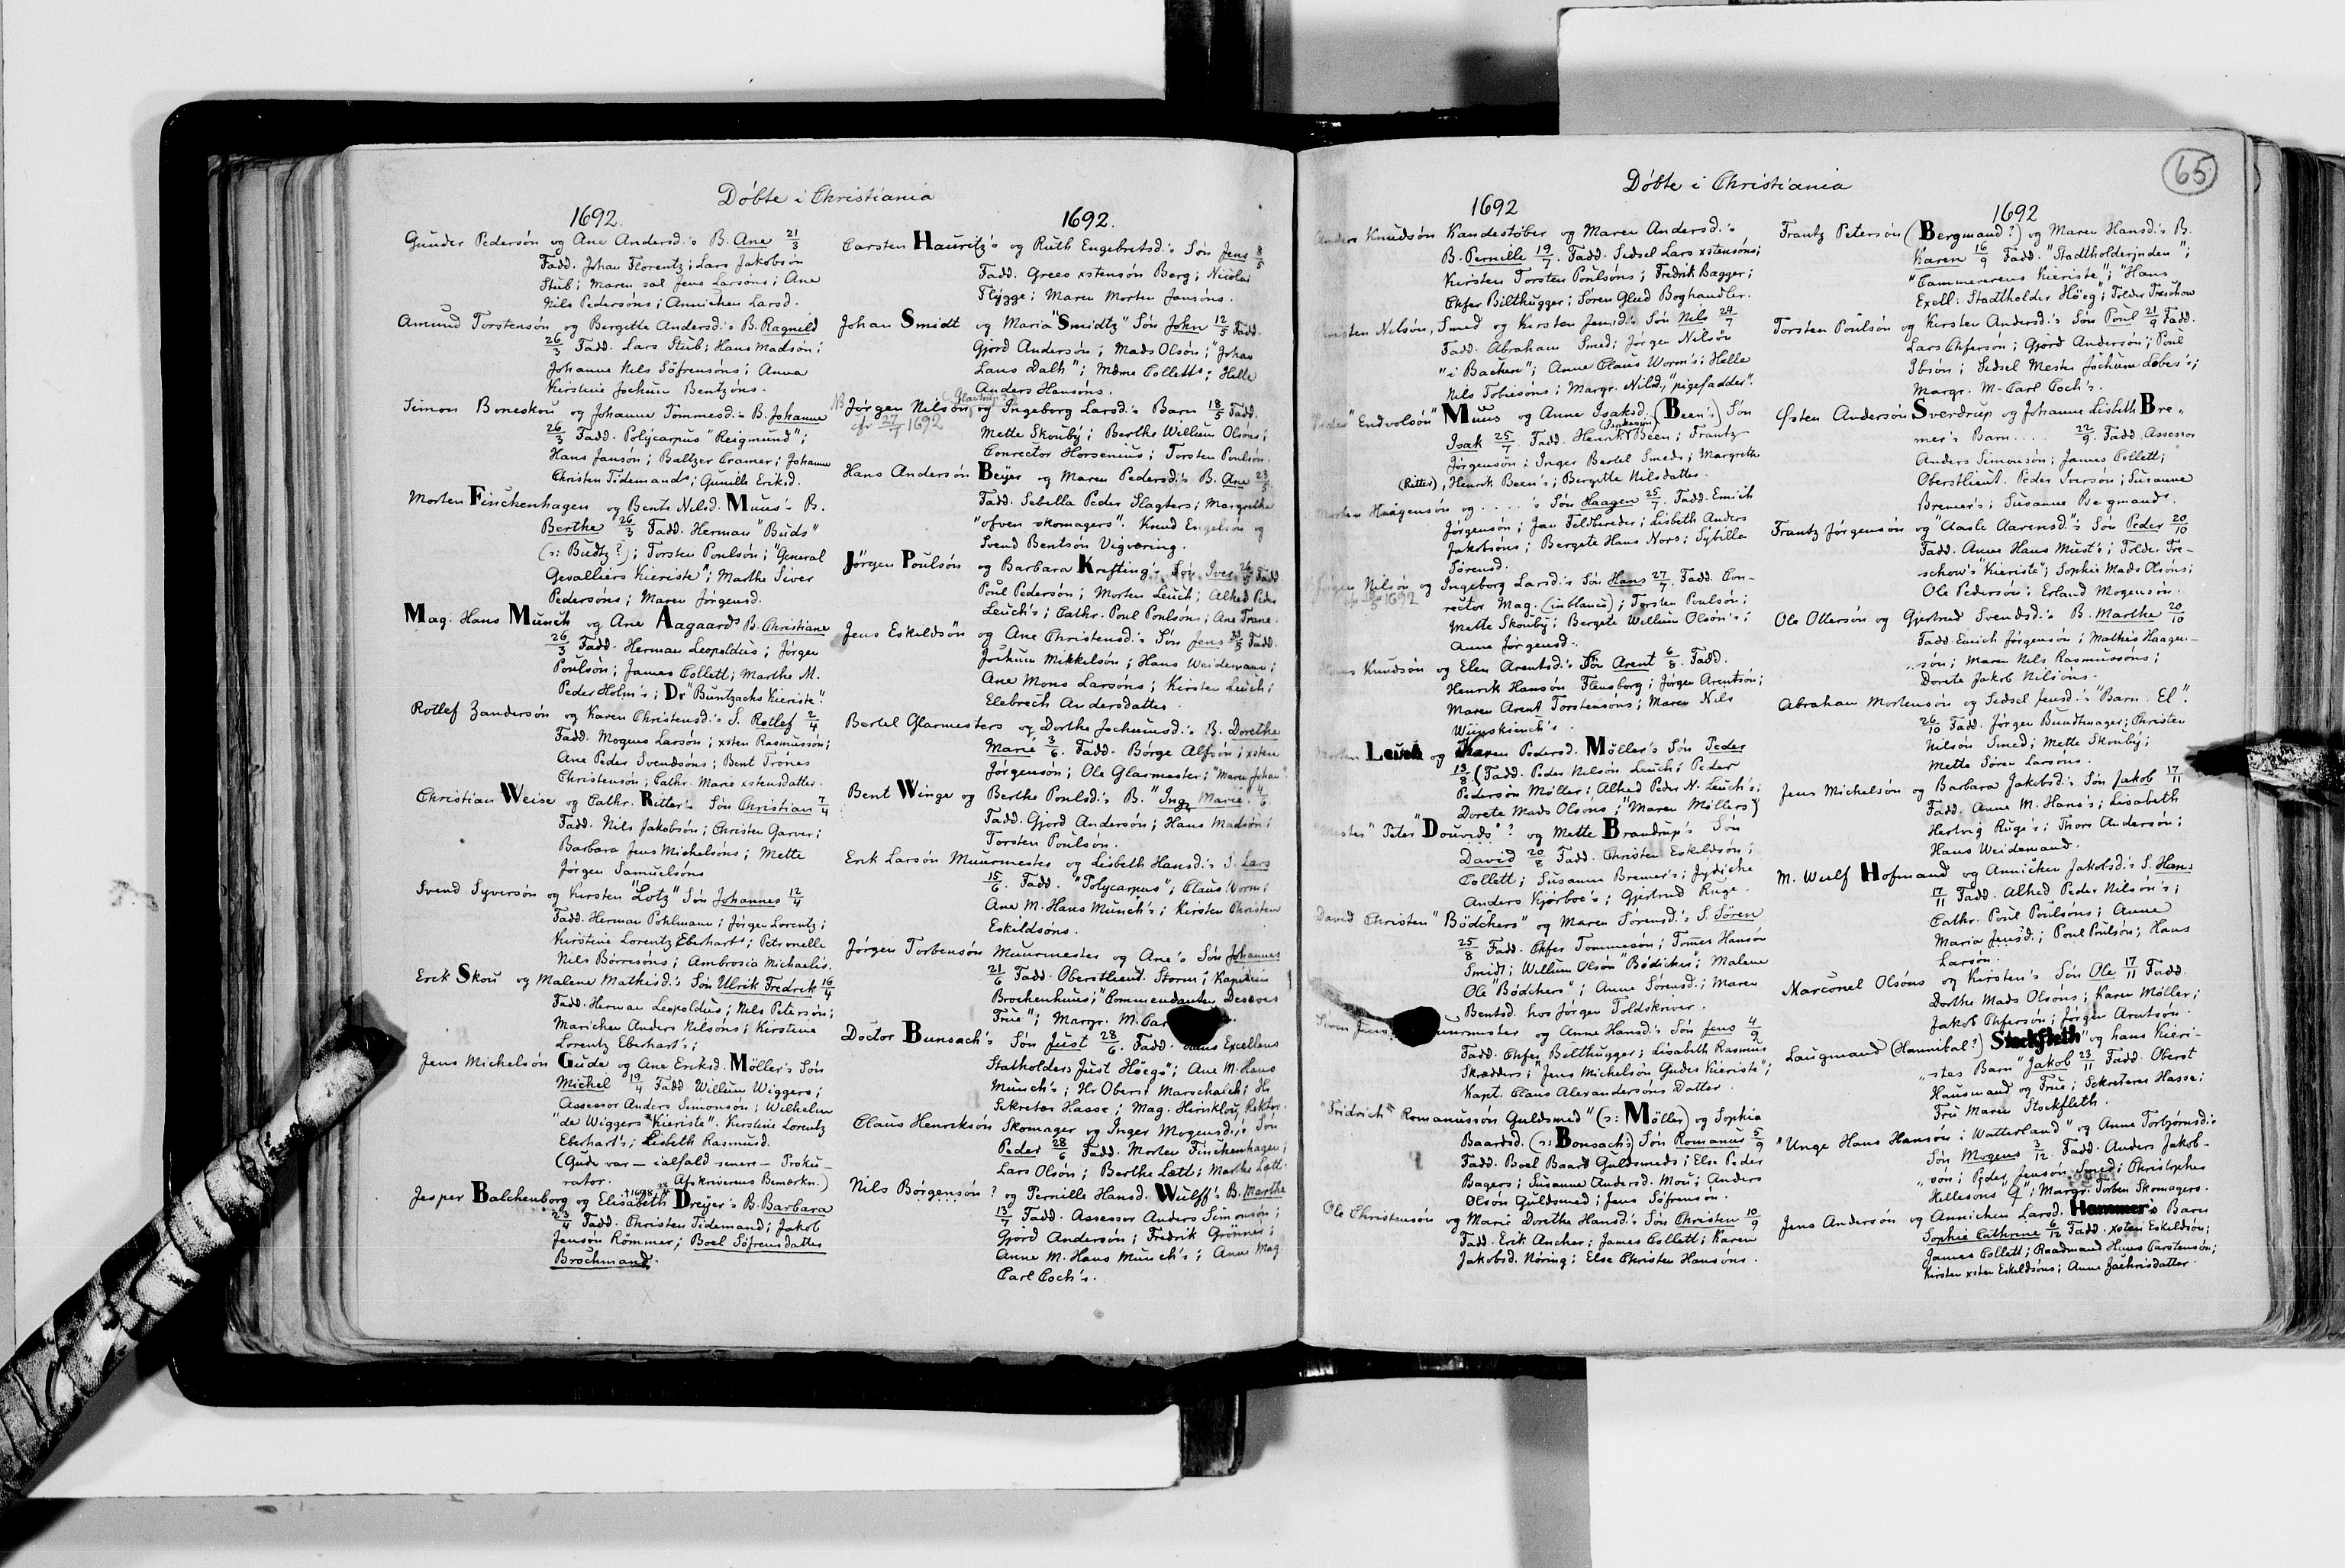 Döbte i Christiania
1692.
Gunder Pedersön og Ane Andersd.'s B. Ane 21/3
Fadd. Johan Florentz; Lars Jakobsön
Stub; Maren sal Jens Larsöns; Ane
Nils Pedersöns; Annichen Larsd.
Amund Torstensön og Bergitte Andersd.'s B. Ragnild
26/3 Fadd. Lars Stub; Hans Madsön;
Johanne Nils Söfrensöns; Anna
Kirstine Jochum Bentzöns.
Simon Boneskou og Johanne Tommesd.'s B. Johanne
26/3 Fadd. Polycarpus "Reigmund";
Hans Jansön; Baltzer Cramer; Johanne
Christen Tidemands; Gunille Eriksd.
Morten Finchenhagen og Bente Nilsd. Muus's B.
Berthe 26/3 Fadd. Herman "Buds"
(ɔ: Budtz?); Torsten Poulsön; "General
Gevalliers Kieriste"; Marthe Siver
Pedersöns; Maren Jörgensd.
Mag. Hans Munch og Ane Aagaards B. Christiane
26/3 Fadd. Herman Leopoldus; Jörgen
Poulsön; James Collett; Marthe M.
Peder Holm's; Dr "Buntzachs Kieriste".
Rotlef Zandersön og Karen Christensd.'s S. Rotlef 2/4
Fadd. Mogens Larsön; xsten Rasmussön;
Ane Peder Svendsöns; Bent Trones
Christensön; Cathr. Marie xstensdatter.
Christian Weise og Cathr. Ritter's Sön Christian 7/4
Fadd. Nils Jakobsön; Christen Garver;
Barbara Jens Michelsöns; Mette
Jörgen Samuelsöns
Svend Syversön og Kirsten "Lotz" Sön Johannes 12/4
Fadd. Herman Pohlmann; Jörgen Lorentz;
Kirstine Lorentz Eberharts; Petronelle
Nils Börresöns; Ambrosia Michaelis.
Erik Skou og Malene Mathisd.'s Sön Ulrik Fredrik 16/4
Fadd. Herman Leopoldus; Nils Petersön;
Marichen Anders Nilsöns; Kirstine
Lorentz Eberhart's;
Jens Michelsön Gude og Ane Eriksd. Möller's Sön
Michel 19/4 Fadd. Willum Wiggers;
Assessor Anders Simonsön; Wilhelm
"de Wiggers Kieriste". Kirstine Lorentz
Eberhart's; Lisbeth Rasmusd.
(Gude var – ialfald senere – Proku-
rator. Afskriverens Bemærkn.)
Jesper Balchenborg og Elisabeth Dreyer's B. Barbara
23/4 Fadd. Christen Tidemand; Jakob
Jensön Römmer; Boel Söfrensdatter
Brochmand.
1692.
Carsten Hauritz's og Ruth Engebretsd.'s Sön Jens 8/5
Fadd. Grees xstensön Berg; Nicolai
Flygge; Maren Morten Jansöns.
Johan Smidt og Maria "Smidtz" Sön John 12/5 Fadd.
Gjord Andersön; Mads Olsön; "Johan
Lans Dalh"; Mdme Colletts; Helle
Anders Hansöns.
NB Jörgen Nilsön og Ingeborg Larsd.'s Barn 18/5 Fadd.
cfr 27/7 1692
Mette Skouby; Berthe Willum Olsöns;
Conrector Horsenius; Torsten Poulsön.
Hans Andersön Beyer og Maren Pedersd.'s B. Ane 23/5
Fadd. Sebella Peder Slagters; Margrethe
"ofven skomagers". Knud Engelsön og
Svend Bentsön Vigværing.
Jörgen Poulsön og Barbara Krefting's Sön Iver 26/5 Fadd
Poul Pedersön; Morten Leuch; Alhed Peder
Leuch's; Cathr. Poul Poulsöns; Ane Trane.
Jens Eskildsön og Ane Christensd.'s Sön Jens 31/5 Fadd.
Jochum Mikkelsön; Hans Weidemann;
Ane Mons Larsöns; Kirsten Leuch;
Elebrech Andersdatter.
Bertel Glarmesters og Dorthe Jochumsd.'s B. Dorethe
Marie 3/6. Fadd. Börge Alfsön; xsten
Jörgensön; Ole Glarmester; "Maren Johan".
Bent Winge og Berthe Poulsd.'s B. "Inge Marie" 4/6
Fadd. Gjord Andersön; Hans Madsön;
Torsten Poulsön.
Erik Larsön Muurmester og Lisbeth Hansd.'s S. Lars
15/6. Fadd. "Polycarpus"; Claus Worm;
Ane M. Hans Munch's; Kirsten Christen
Eskildsöns.
Jörgen Torbensön Muurmester og Ane's Sön Johannes
21/6 Fadd. Oberstlieut. Storm; Kapitein
Brochenhuus; "Commendanten Deseves
Frue"; Margr. M. Car
Doctor Bunsach's Sön Just 28/6. Fadd. Hans Excellens
Statholder Just Höegs; Ane M. Hans
Munch's; Hr Oberst Marschalch; Hr
Sekretær Hasse; Mag. Hirnklou, Rektor.
Claus Henriksön Skomager og Inger Mogensd.'s Sön
Peder 28/6 Fadd. Morten Finchenhagen;
Lars Olsön; Berthe Lætt; Marthe Lætt.
Nils Börgensön? og Pernille Hansd. Wulff's B. Marthe
13/7 Fadd. Assessor Anders Simonsön;
Gjord Andersön; Fredrik Grönner;
Anne M. Hans Munch's; Anne Mag.
Carl Coch's.
65
Döbte i Christiania
1692
Anders Knudsön Kandestöber og Maren Andersd.'s
B. Pernille 19/7. Fadd. Sidsel Lars xstensöns;
Kirsten Torsten Poulsöns; Fredrik Bagger;
Chfer Bilthugger; Sören Glud Boghandler.
Nilsön, Smed og Kirsten Jensd.'s Sön Nils 24/7
Fadd. Abraham Smed; Jörgen Nilsön
"i Bachen"; Anne Claus Worm's; Helle
Nils Tobiesöns; Margr. Nilsd., "pigefadder".
"Endvolsön" Muus og Anne Isaksd. (Been's) Sön
Isak 25/7 Fadd. Henrik (Isaksen) Been; Frantz
Jörgensön; Inger Bertel Smeds; Margrethe
(Ritter), Henrik Been's; Bergette Nilsdatter.
Morten Haagensön og .....'s Sön Haagen 25/7. Fadd. Emich
Jörgensön; Jan Feldbereder; Lisbeth Anders
Jakobsöns; Bergete Hans Nors; Sybilla
Sörensd.
Jörgen Nilsön og Ingeborg Larsd.'s Sön Hans 27/7. Fadd. Con-
rector Mag. (in blanco); Torsten Poulsön;
Mette Skouby; Bergete Willum Olsön's;
Anne Jörgensd.
Knudsön og Elen Arentsd.'s Sön Arent 6/8. Fadd.
Henrik Hansön Flensborg; Jörgen Arentsön;
Maren Arent Torstensöns; Maren Nils
Morten Leuch og Karen Pedersd. Möller's Sön Peder
13/8 (Fadd. Peder Nilsön Leuch; Peder
Pedersön Möller; Alhed Peder N. Leuch's;
Dorete Mads Olsöns; "Maren Möllers")
"Mester" Peter "Douvids"? og Mette Brandrup's Sön
David 20/8 Fadd. Christen Eskildsön;
Collett; Susanne Bremer's; Jydiche
Anders Kjörboe's; Gjertrud Ruge.
David Christen "Bödchers" og Maren Sörensd.'s S. Sören
25/8 Fadd. Chfer Tommesön; Tomes Hansön
Smidt; Willum Olsön "Bödicher"; Malene
Ole "Bödchers"; Anne Sörensd.; Maren
Bentsd. hos Jörgen Toldskriver.
og Anne Hansd.'s Sön Jens 4/9
Fadd. Chfer Bilthugger; Lisabeth Rasmus
Skrædders; "Jens Michelsön Gudes Kieriste";
Kapt. Claus Alexandersöns Datter.
"Fridrich" Romanussön Guldsmed" (ɔ: Möller) og Sophia
Baardsd. (ɔ: Bonsach's) Sön Romanus 5/9
Fadd. Boel Baard Guldsmeds; Else Peder
Bagers; Susanne Andersd. Mou; Anders
Olsön Guldsmed; Jens Söfrensön.
Ole Christensön og Marie Dorethe Hansd.'s Sön Christen 10/9
Fadd. Erik Ancher; James Collett; Karen
Jakobsd. Nöring; Else Christen Hansöns.
1692
Frantz Petersön (Bergmand?) og Maren Hansd.'s B.
Karen 16/9 Fadd. "Stadtholderinden";
"Cammererens Kieriste"; "Hans
Exell. Stadtholder Höeg"; Tolder Treschow
Torsten Poulsön og Kirsten Andersd.'s Sön Poul 21/9 Fadd.
Lars Chfersön; Gjord Andersön; Poul
Ibsön; Sidsel Mester Jochum Lobes's;
Margr. M. Carl Coch's.
Östen Andersön Sverdrup og Johanne Lisbeth Bre-
mer's Barn .... 22/9. Fadd. Assessor
Anders Simonsön; James Collett;
Oberstlieut. Peder Iversön; Susanne
Bremer's; Susanne Bergmands.
Frantz Jörgensön og "Aasle Aarensd."'s Sön Peder 20/10
Fadd. Anne Hans Must's; Tolder Tre-
schow's "Kieriste"; Sophie Mads Olsöns;
Ole Pedersön; Erland Mogensön.
Ole Ottersön og Gjertrud Svendsd.'s B. Marthe 20/10
Fadd. Emich Jörgensön; Mathis Haagen-
sön; Maren Nils Rasmussöns;
Dorete Jakob Nilsöns.
Abraham Mortensön og Sidsel Jensd.'s "Barn. El".
26/10 Fadd. Jörgen Bundtmager; Christen
Nilsön Smed; Mette Skouby;
Mette Sören Larsöns.
Jens Michelsön og Barbara Jakobsd.'s Sön Jakob 17/11
Fadd. Anne M. Hans's; Lisabeth
Hertvig Ruge's; Thore Andersön;
Hans Weidemand.
M. Wulf Hofmand og Annichen Jakobsd.'s S. Hans
17/11 Fadd. Alhed Peder Nilsön's;
Cathr. Poul Poulsöns; Anne
Maria Jensd.; Poul Poulsön; Hans
Larsön.
Narconel Olsöns og Kirsten's Sön Ole 17/11 Fadd.
Dorthe Mads Olsöns; Karen Möller;
Jakob Chfersön; Jörgen Arntsön.
Laugmand (Hannibal?) Stockfleth "og hans Kieri-
stes Barn" Jakob 23/11 Fadd. Oberst
Hausmand og Frue; Sekreterer Hasse;
Fru Maren Stockfleth.
"Unge Hans Hansön i Watterland" og Anne Torbjörnsd.'s
Sön Mogens 3/12. Fadd. Anders Jakob-
sön; Peder Jensön Smed; Christopher
Hellesöns "Q"; Margr. Torben Skomagers.
Jens Andersön og Annichen Larsd. Hammer's Barn
Sophie Cathrine 6/12 Fadd. xsten Eskeldsön;
James Collett; Raadmand Hans Carstensön;
Kirsten xsten Eskeldsöns; Anne Zachrisdatter.